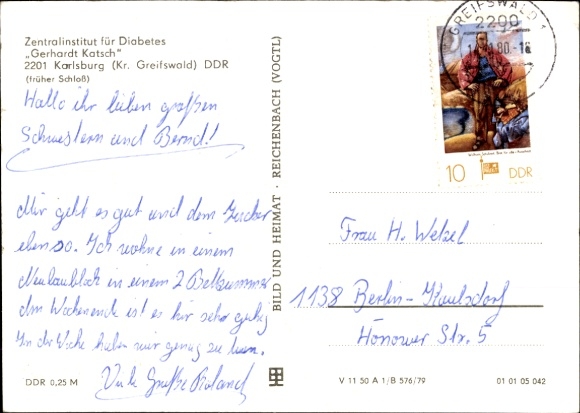 Zentralinstitut für Diabetes
„Gerhardt Katsch"
2201 Karlsburg (Kr. Greifswald) DDR
(früher Schloß)
Hallo ihr lieben großen
Schwestern und Bernd!
Mir geht es gut und dem Zucker
ebenso. Ich wohne in einem
Neubaublock in einem 2 Bettzimmer
Am Wochenende ist es hir sehr ruhig
In der Woche haben wir genug zu tun.
Viele Grüße Roland
DDR 0,25 M
BILD UND HEIMAT · REICHENBACH (VOGTL)
GREIFSWALD 1
2200
80
10
DDR
Frau H. Wetzel
1138 Berlin-Kaulsdorf
Hönower Str. 5
V 11 50 A 1/B 576/79
01 01 05 042